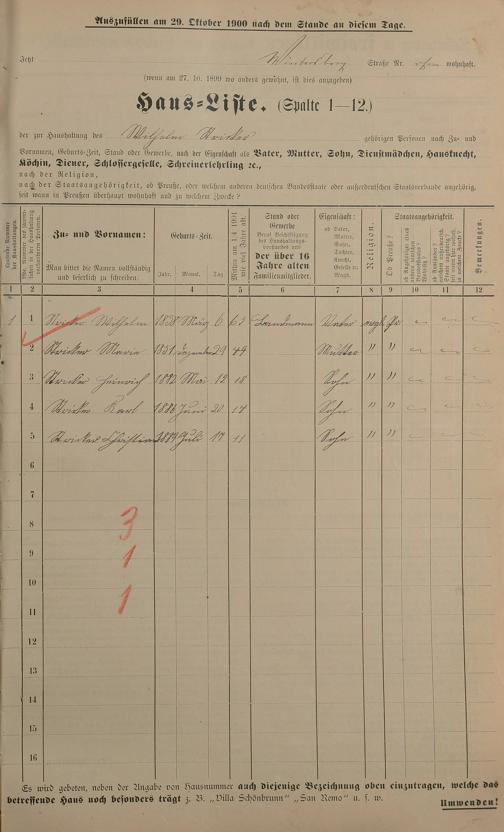 Auszufüllen am 29. Oktober 1900 nach dem Stande an diesem Tage.
Jetzt Straße Nr. ohne wohnhaft.
(wenn am 27. 10. 1899 wo anders gewohnt, ist dies anzugeben)
Haus=Liste. (Spalte 1—12.)
der zur Haushaltung des Wilhelm Stricker gehörigen Personen nach Zu= und
Vornamen, Geburts=Zeit, Stand oder Gewerbe, nach der Eigenschaft als Vater, Mutter, Sohn, Dienstmädchen, Hausknecht,
Köchin, Diener, Schlossergeselle, Schreinerlehrling ec.,
nach der Religion,
nach der Staatsangehörigkeit, ob Preuße, oder welchem anderen deutschen Bundesstaate oder außerdeutschen Staatsverbande angehörig,
seit wann in Preußen überhaupt wohnhaft und zu welchem Zwecke?
Laufende Nummer
Zu= und Vornamen:
Man bittet die Namen vollständig
und leserlich zu schreiben.
Geburts=Zeit.
Jahr. Monat. Tag
Mithin am 1./4. 1901
wie viel Jahre alt.
Stand oder
Gewerbe
der über 16
Jahre alten
Familienmitglieder.
Eigenschaft:
ob Vater,
Mutter,
Sohn,
Tochter,
Knecht,
Geselle u.
Magd.
Religion.
Ob Preuße?
Staatsangehörigkeit.
Bemerkungen.
1 2 3 4 5 6 7 8 9 10 11 12
1 1 Stricker Wilhelm 1838 März 6 63 Landmann Vater evgl. Pr.
2 Stricker Maria 1851 Dezember 29 49 Mutter " "
3 Stricker Heinrich 1882 Mai 12 18 Sohn " "
4 Stricker Karl 1886 Juni 20 14 Sohn " "
5 Stricker Christian 1889 Juli 17 11 Sohn " "
6
7
8 3
9 1
10
11 1
12
13
14
15
16
Es wird gebeten, neben der Angabe von Hausnummer auch diejenige Bezeichnung oben einzutragen, welche das
betreffende Haus noch besonders trägt z. B. „Villa Schönbrunn" „San Remo" u. s. w.
Umwenden!